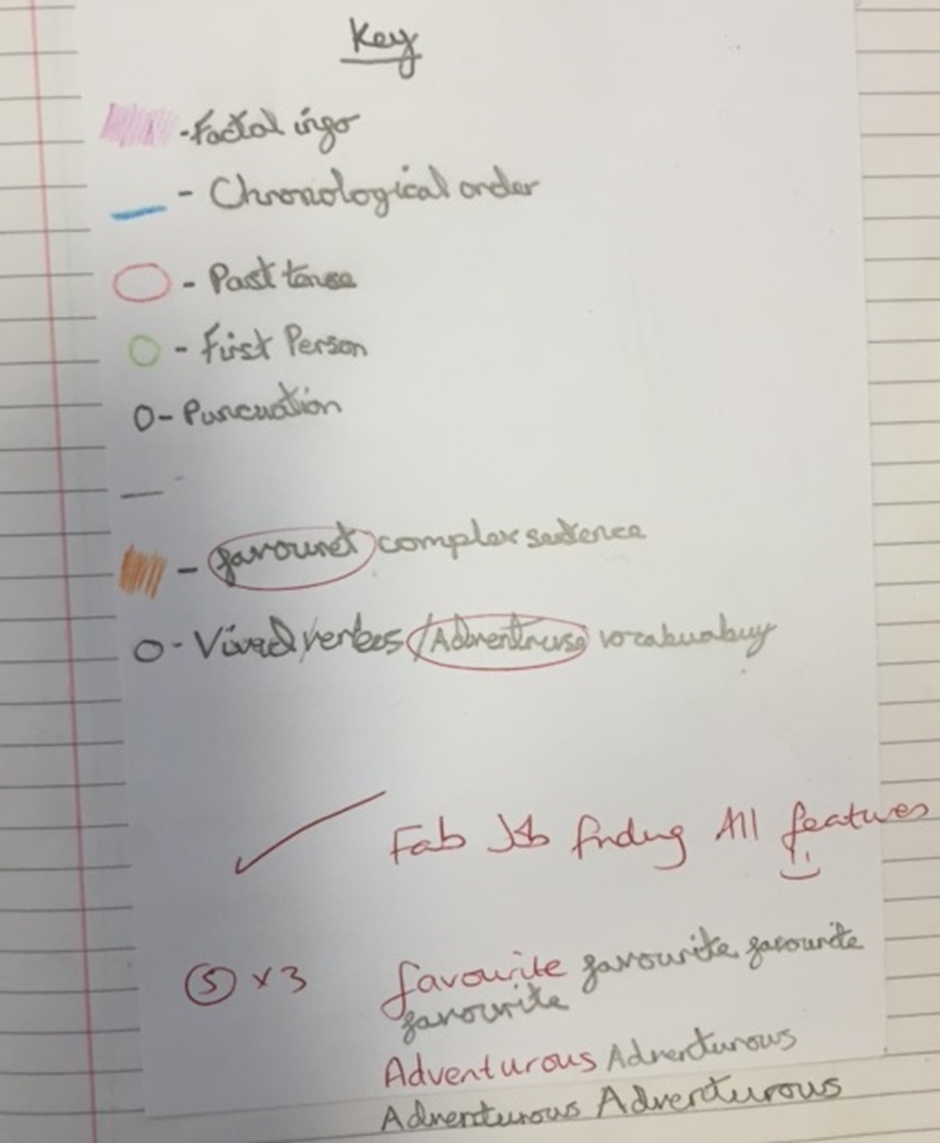 Key
- Factal info
- Chronological order
- Past tense
- First Person
O - Puncuation
- favouret complex sentence
O - Vived verbes / Adventruse vocabuabuy
Fab Job finding All features
S x 3 favourite favourite favourite
favourite
Adventurous Adventurous
Adventurous Adventurous